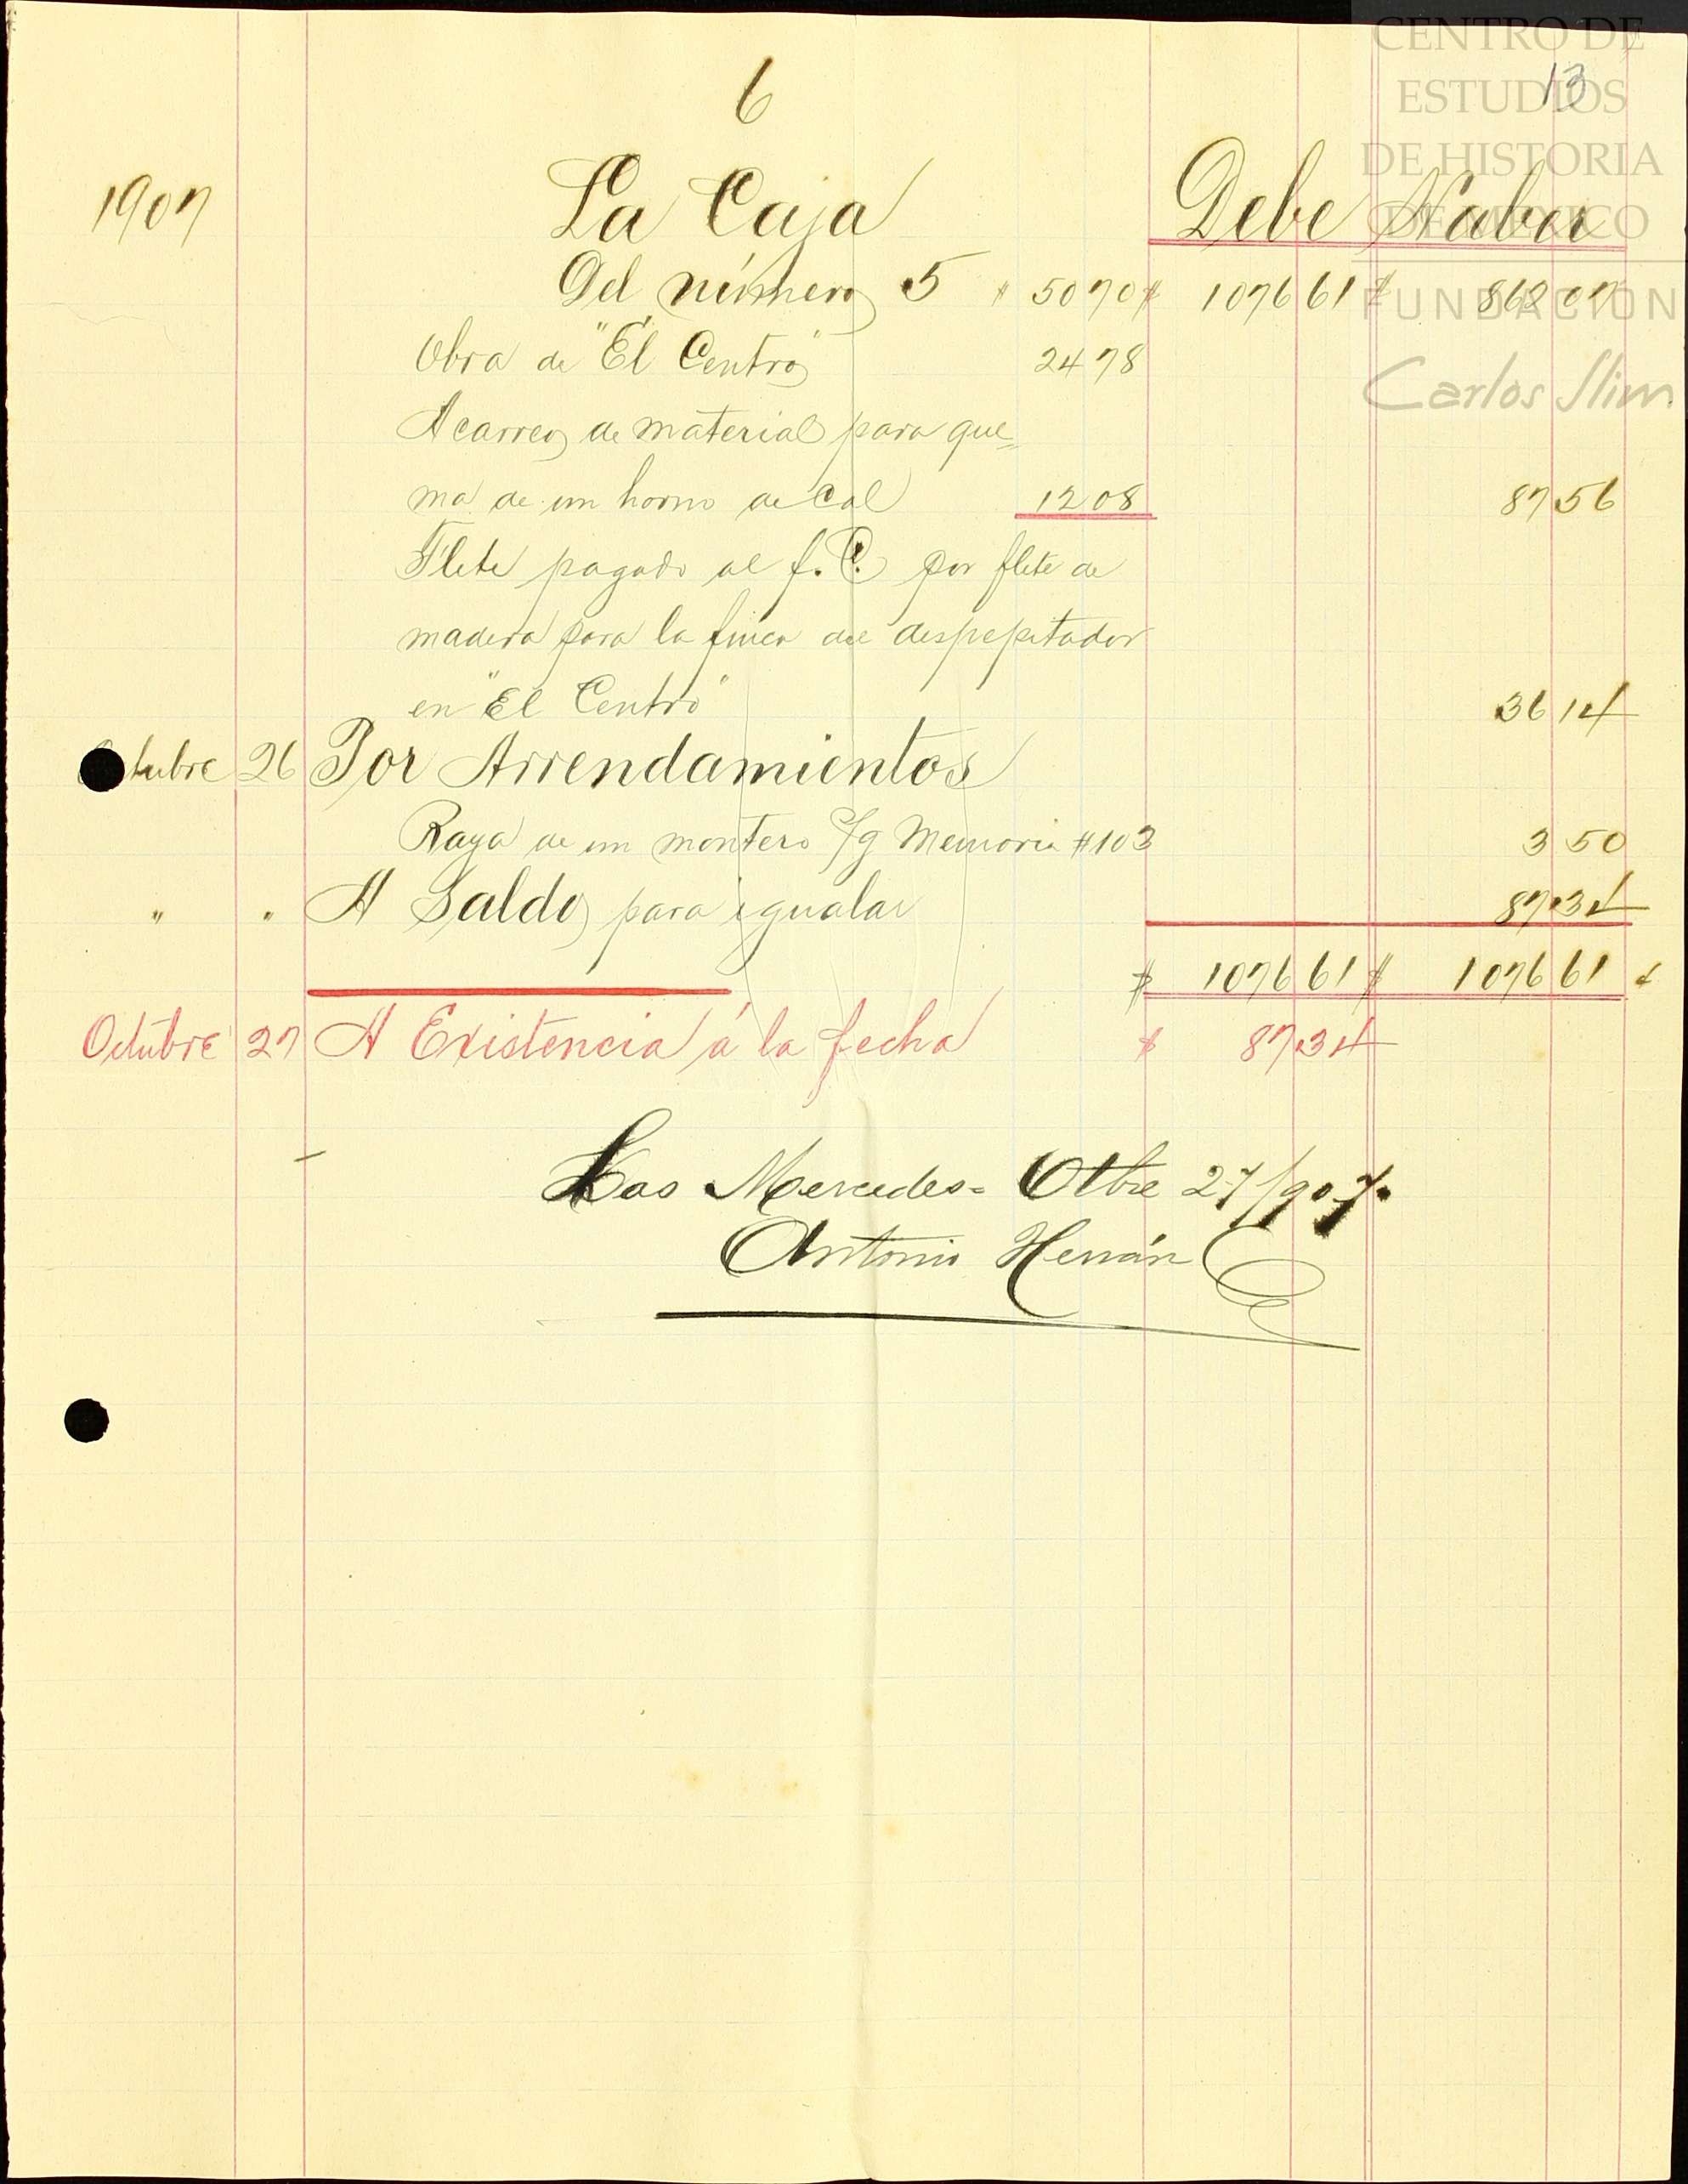 CENTRO DE
ESTUDIOS
DE HISTORIA
DE MÉXICO
FUNDACIÓN
Carlos Slim
6
13
1907 La Caja Debe Haber
Del número 5 $ 50 70 $ 1076 61 $ 862 07
Obra de "El Centro" 24 78
Acarreo de material para que=
ma de un horno de cal 12 08 87 56
Flete pagado al f. C. por flete de
madera para la finca del despepitador
en "El Centro" 36 14
Octubre 26 Por Arrendamientos
Raya de un montero s/g Memoria #103 3 50
" " A Saldo para igualar 87 34
$ 1076 61 $ 1076 61
Octubre 27 A Existencia á la fecha $ 87 34
Las Mercedes= Otbre 27/907.
Antonio Herrán